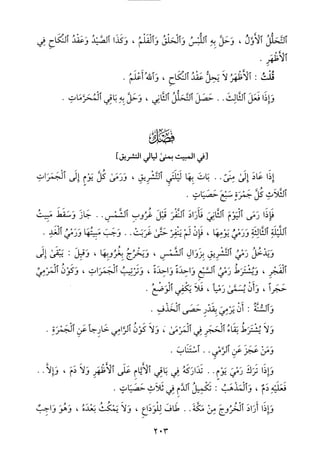 ٱلتَّحَلُّلُ ٱلْأَوَّلُ ، وَحَلَّ بِهِ ٱللُّبْسُ وَٱلْحَلْقُ وَٱلْقَلْمُ ، وَكَذَا ٱلصَّيْدُ وَعَقْدُ ٱلنِّكَاحِ فِي
ٱلْأَظْهَرِ .
قُلْتُ : ٱلْأَظْهَرُ لاَ يَحِلُّ عَقْدُ ٱلنِّكَاحِ ، وَٱللهُ أَعْلَمُ .
وَإِذَا فَعَلَ ٱلثَّالِثَ.. حَصَلَ ٱلتَّحَلُّلُ ٱلثَّانِي ، وَحَلَّ بِهِ بَاقِي ٱلْمُحَرَّمَاتِ .
فَصْلٌ
[في المبيت بمنىً ليالي التشريق]
إِذَا عَادَ إِلَىٰ مِنَىً.. بَاتَ بِهَا لَيْلَتَيِ ٱلتَّشْرِيقِ ، وَرَمَىٰ كُلَّ يَوْمٍ إِلَى ٱلْجَمَرَاتِ
ٱلثَّلاَثِ كُلَّ جَمْرَةٍ سَبْعَ حَصَيَاتٍ .
فَإِذَا رَمَى ٱلْيَوْمَ ٱلثَّانِيَ فَأَرَادَ ٱلنَّفْرَ قَبْلَ غُرُوبِ ٱلشَّمْسِ.. جَازَ وَسَقَطَ مَبِيتُ
ٱللَّيْلَةِ ٱلثَّالِثَةِ وَرَمْيُ يَوْمِهَا ، فَإِنْ لَمْ يَنْفِرْ حَتَّىٰ غَرَبَتْ.. وَجَبَ مَبِيتُهَا وَرَمْيُ ٱلْغَدِ .
وَيَدْخُلُ رَمْيُ ٱلتَّشْرِيقِ بِزَوَالِ ٱلشَّمْسِ ، وَيَخْرُجُ بِغُرُوبِهَا ، وَقِيلَ : يَبْقَىٰ إِلَى
ٱلْفَجْرِ ، وَيُشْتَرَطُ رَمْيُ ٱلسَّبْعِ وَاحِدَةً وَاحِدَةً ، وَتَرْتِيبُ ٱلْجَمَرَاتِ ، وَكَوْنُ ٱلْمَرْمِيِّ
حَجَراً ، وَأَنْ يُسَمَّىٰ رَمْياً ، فَلاَ يَكْفِي ٱلْوَضْعُ .
وَٱلسُّنَّةُ : أَنْ يَرْمِيَ بِقَدْرِ حَصَى ٱلْخَذْفِ .
وَلاَ يُشْتَرَطُ بَقَاءُ ٱلْحَجَرِ فِي ٱلْمَرْمَىٰ ، وَلاَ كَوْنُ ٱلرَّامِي خَارِجاً عَنِ ٱلْجَمْرَةِ .
وَمَنْ عَجَزَ عَنِ ٱلرَّمْيِ.. ٱسْتَنَابَ .
وَإِذَا تَرَكَ رَمْيَ يَوْمٍ.. تَدَارَكَهُ فِي بَاقِي ٱلْأَيَّامِ عَلَى ٱلْأَظْهَرِ وَلاَ دَمَ ، وَإِلاَّ..
فَعَلَيْهِ دَمٌ ، وَٱلْمَذْهَبُ : تَكْمِيلُ ٱلدَّمِ فِي ثَلاَثِ حَصَيَاتٍ .
وَإِذَا أَرَادَ ٱلْخُرُوجَ مِنْ مَكَّةَ.. طَافَ لِلْوَدَاعِ ، وَلاَ يَمْكُثُ بَعْدَهُ ، وَهُوَ وَاجِبٌ
٢٠٣